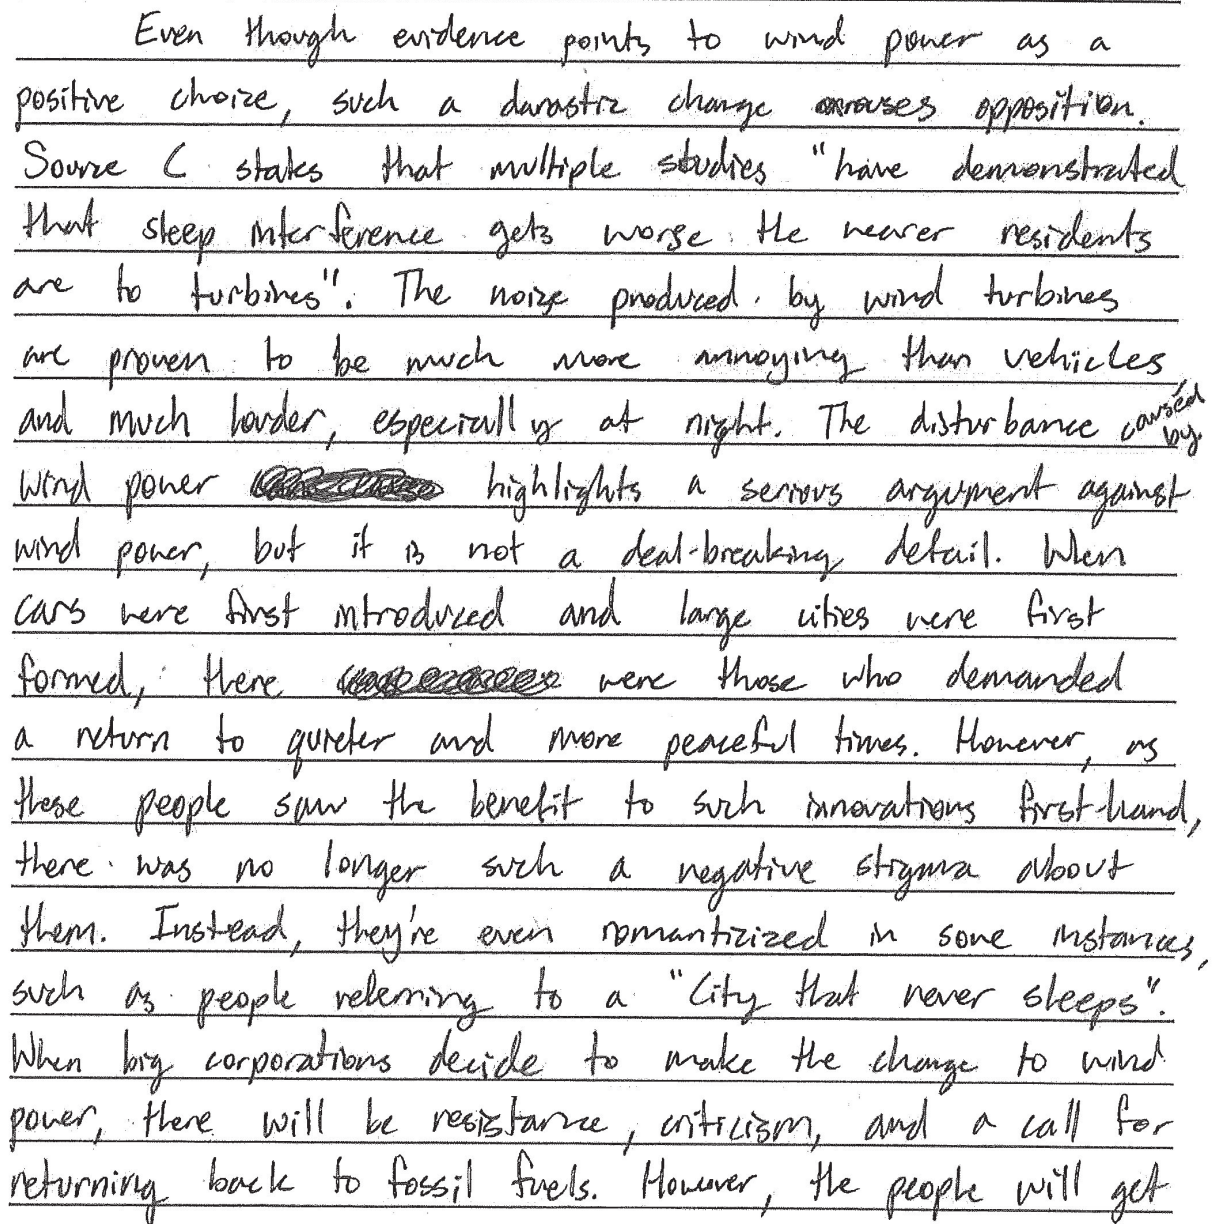 Even though evidence points to wind power as a
positive choice, such a darastic change arouses opposition.
Source C states that multiple studies "have demonstrated
that sleep interference gets worse the nearer residents
are to turbines". The noise produced by wind turbines
are proven to be much more annoying than vehicles
and much louder, especially at night. The disturbance caused by
wind power highlights a serious argument against
wind power, but it is not a deal-breaking detail. When
cars were first introduced and large cities were first
formed, there were those who demanded
a return to quieter and more peaceful times. However, as
these people saw the benefit to such innovations first-hand,
there was no longer such a negative stigma about
them. Instead, they're even romanticized in some instances,
such as people referring to a "City that never sleeps".
When big corporations decide to make the change to wind
power, there will be resistance, criticism, and a call for
returning back to fossil fuels. However, the people will get